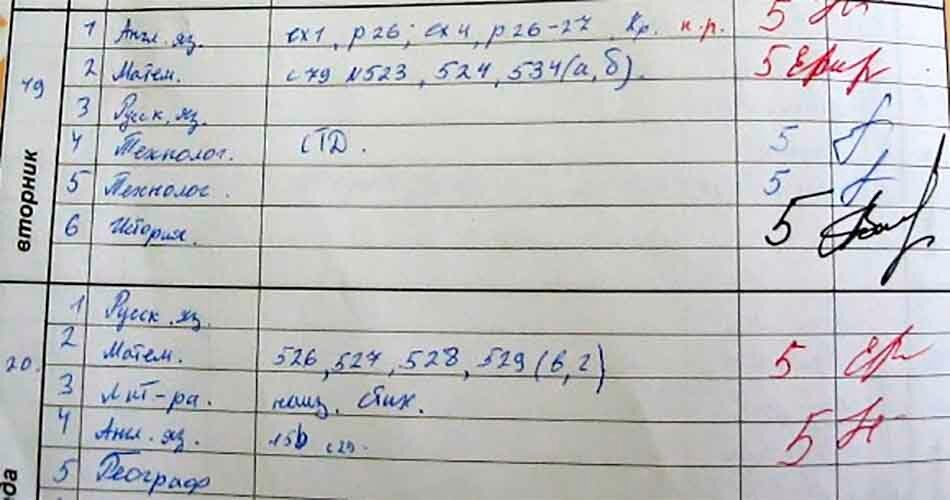 19
вторник
1 Англ. яз. ex1, p26; ex4, p26-27 Кр. н.р. 5
2 Матем. с79 №523, 524, 534(а, б). 5
3 Русск. яз.
4 Технолог. СТD. 5
5 Технолог. 5
6 История. 5
20.
1 Русск. яз.
2 Матем. 526, 527, 528, 529 (в, г) 5
3 Лит-ра. наиз. стих.
4 Англ. яз. 15b с29. 5
5 Географ